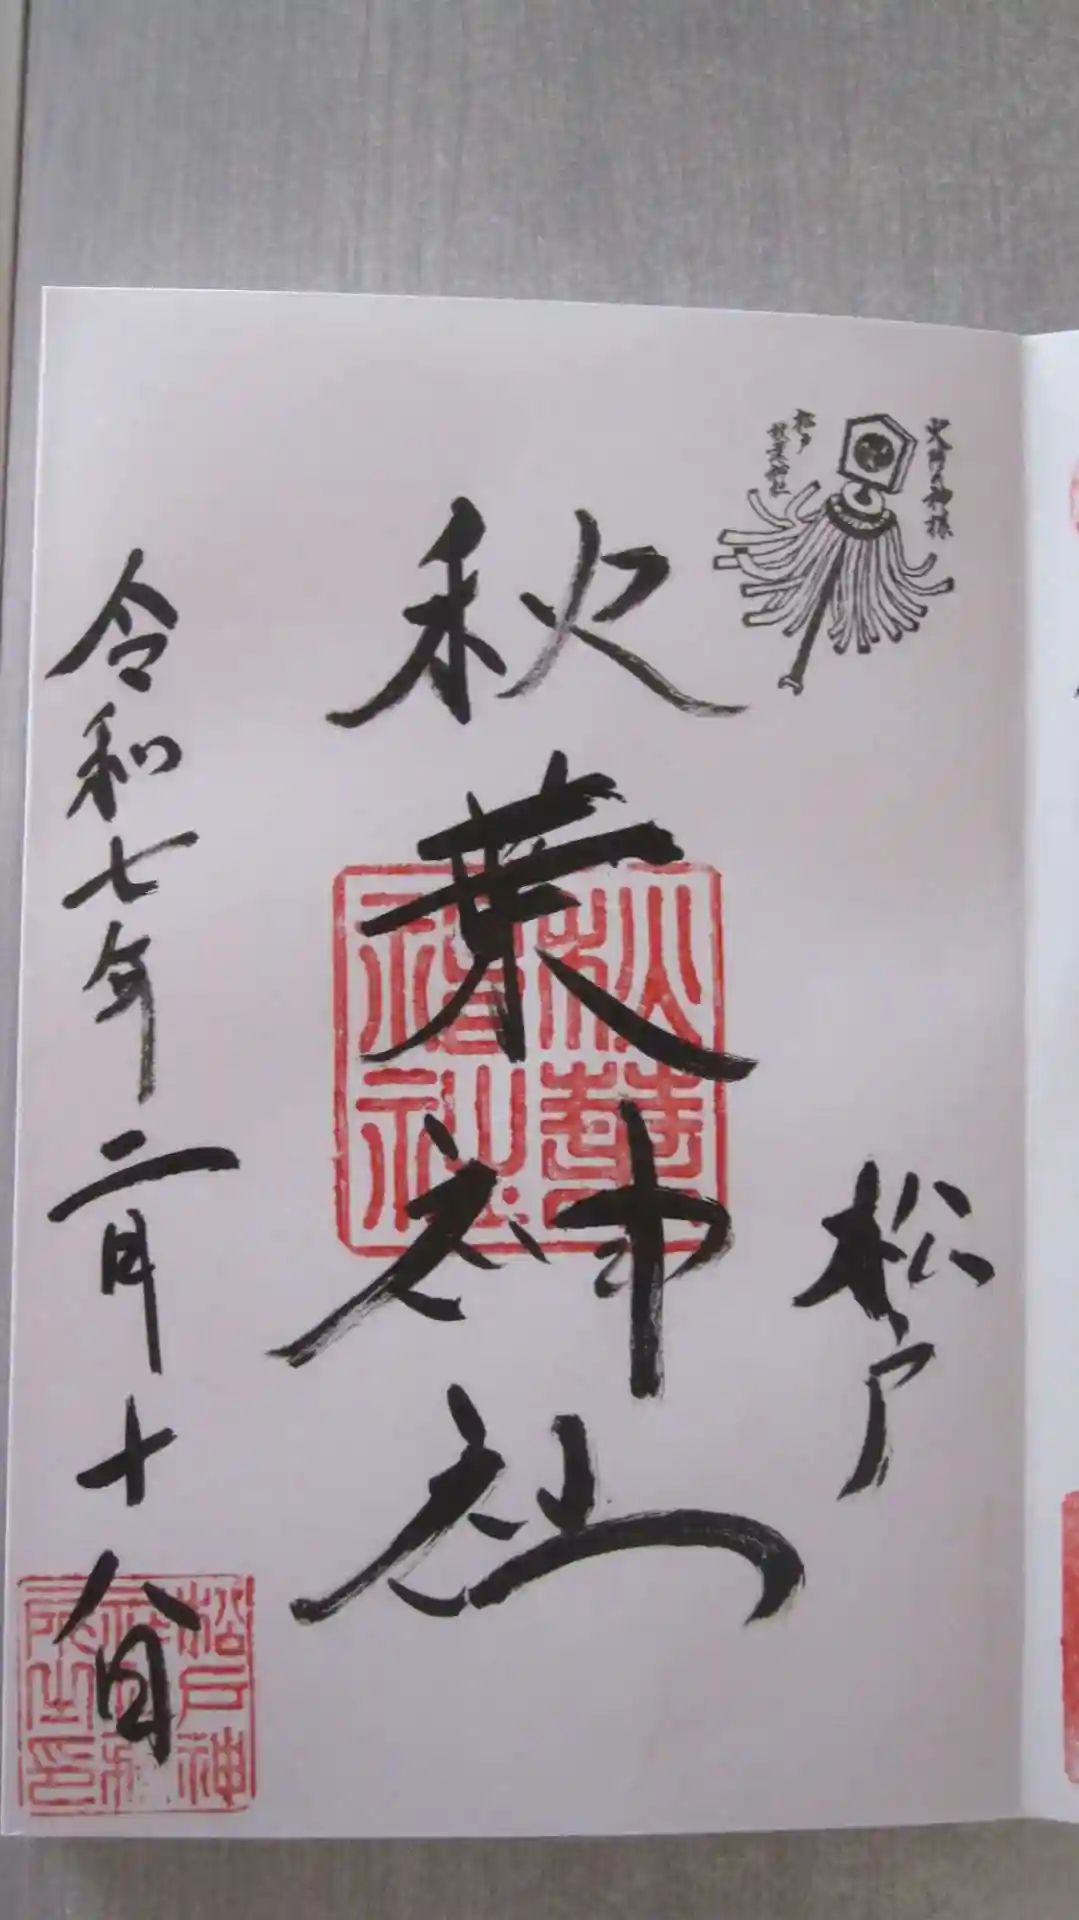 火防の神様
松戸
秋葉神社
松戸
秋葉神社
令和七年二月十八日
秋葉神社
松戸神
所之印